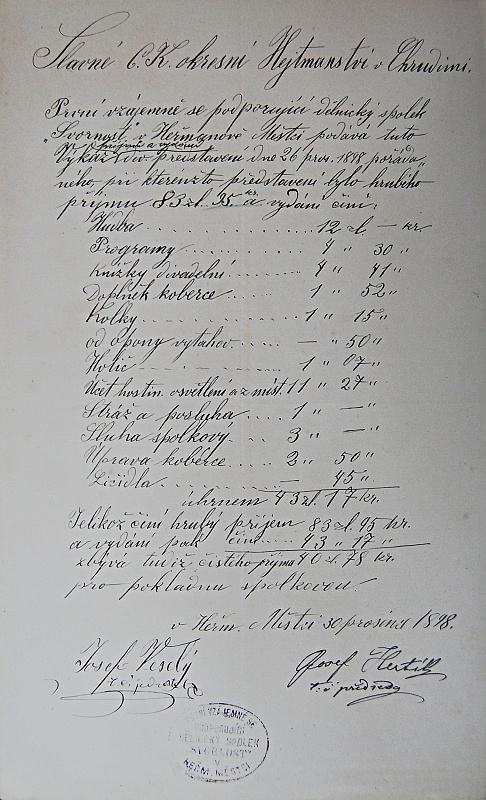 Slavné C. K. okresní Hejtmanství v Chrudimi.
První vzájemně se podporující dělnický spolek
„Svornost" v Heřmanově Městci podává tuto
příjmů a vydání
Výkaz z div. představení dne 26 pros. 1898 pořáda-
ného, při kterémžto představení bylo hrubého
příjmu 83 zl. 95 kr. a vydání činí:
Hudba . . . . . . . . . . 12 zl. — kr.
Programy . . . . . . . . 4 " 30 "
Knížky divadelní . . . . . 4 " 41 "
Doplněk koberce . . . . . 1 " 52 "
Kolky . . . . . . . . . . 1 " 15 "
od opony vytahov. . . . . — " 50 "
Holič . . . . . . . . . . 1 " 07 "
Účet hostin. osvětlení a z míst. 11 " 27 "
Stráž a posluha . . . . 1 " — "
Sluha spolkový . . . 3 " — "
Úprava koberce . . . . 2 " 50 "
Líčidla . . . . . . . — 45 "
úhrnem 43 zl. 17 kr.
Jelikož činí hrubý příjem 83 zl. 95 kr.
a vydání pak činí . . . . 43 " 17 "
zbývá tudíž čistého příjmu 40 zl. 78 kr.
pro pokladnu spolkovou.
v Heřm. Městci 30 prosince 1898.
Josef Veselý
Josef
t. č. předseda
SPOLEK
"SVORNOST"
V
HEŘM. MĚSTCI